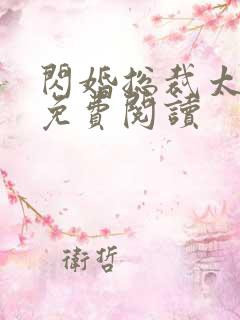 閃婚總裁太
免費閱讀
衛哲